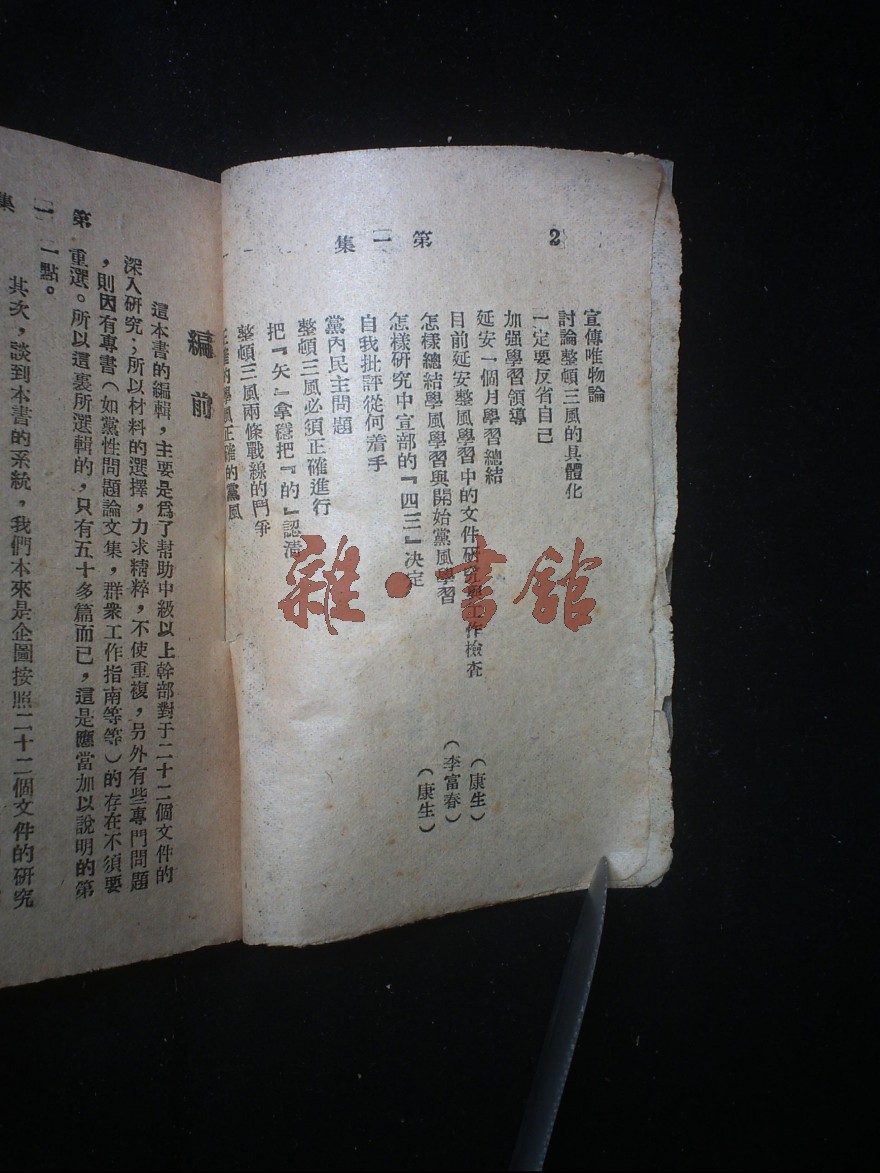 2
第一集
宣傳唯物論
討論整頓三風的具體化
一定要反省自己
加强學習領導
延安一個月學習總結
目前延安整風學習中的文件研究與工作檢查
（康生）
怎樣總結學風學習與開始黨風學習
（李富春）
怎樣研究中宣部的『四三』决定
（康生）
自我批評從何着手
黨內民主問題
整頓三風必須正確進行
把『矢』拿穩把『的』認清
整頓三風兩條戰線的鬥爭
正確的學風正確的黨風
雜·書館
第一集
編前
這本書的編輯，主要是爲了幫助中級以上幹部對于二十二個文件的
深入研究；所以材料的選擇，力求精粹，不使重複，另外有些專門問題
，則因有專書（如黨性問題論文集，群衆工作指南等等）的存在不須要
重選。所以這裏所選輯的，只有五十多篇而已，這是應當加以說明的第
一點。
其次，談到本書的系統，我們本來是企圖按照二十二個文件的研究